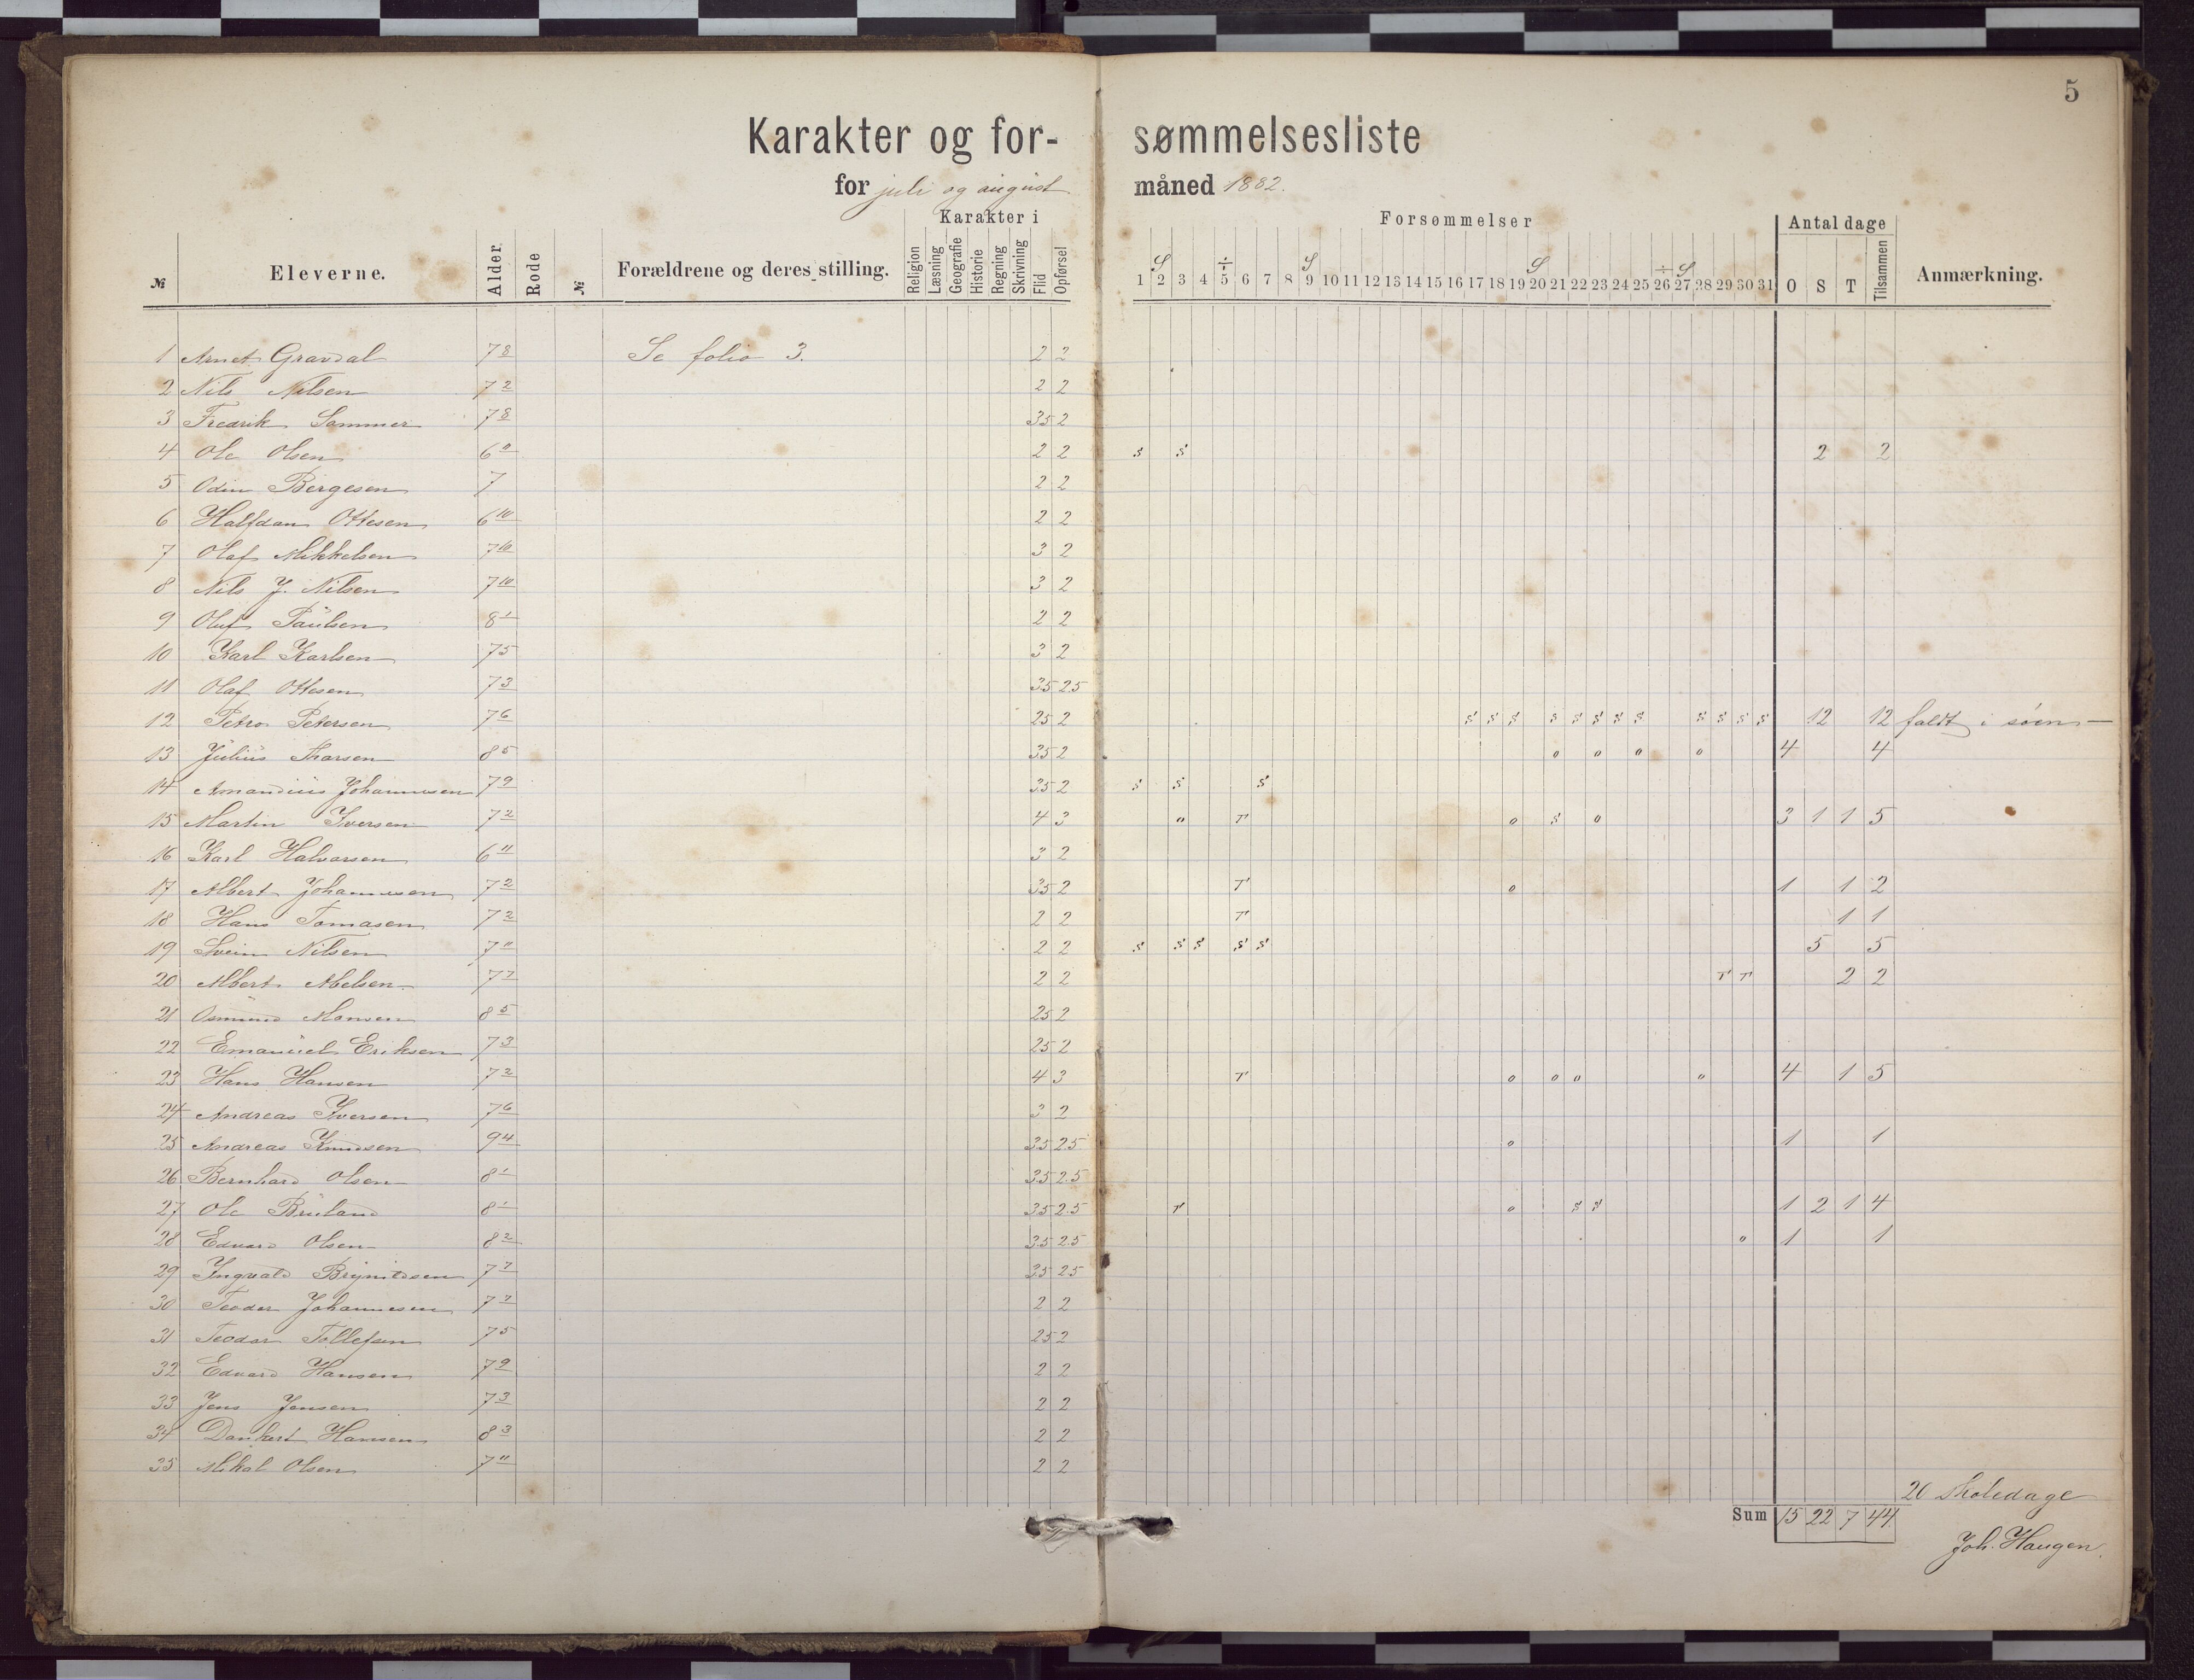 5
Karakter og for- sømmelsesliste
for juli og august måned 1882.
Karakter i Forsømmelser Antal dage
№ Eleverne. Alder. Rode № Forældrene og deres stilling. Religion Læsning Geografie Historie Regning Skrivning Flid Opførsel 1 2 3 4 5 6 7 8 9 10 11 12 13 14 15 16 17 18 19 20 21 22 23 24 25 26 27 28 29 30 31 O S T Tilsammen Anmærkning.
S ÷ S S ÷ S
1 Arnet Gravdal 7 8 Se folio 3. 2 2
2 Nils Nilsen 7 2 2 2
3 Fredrik Sommer 7 8 35 2
4 Ole Olsen 6 2 2 s s 2 2
5 Odin Bergesen 7 2 2
6 Halfdan Ottesen 6 10 2 2
7 Olaf Mikkelsen 7 10 3 2
8 Nils J. Nilsen 7 10 3 2
9 Oluf Paulsen 8 1 2 2
10 Karl Karlsen 7 5 3 2
11 Olaf Ottesen 7 3 35 25
12 Petro Petersen 7 6 25 2 s s s s s s s s s s s s 12 12 faldt i søen
13 Julius Thorsen 8 5 35 2 o o o o 4 4
14 Amandius Johannesen 7 9 35 2 s s s
15 Martin Iversen 7 2 4 3 o T o s o 3 1 1 5
16 Karl Halvorsen 6 11 3 2
17 Albert Johannesen 7 2 35 2 T o 1 1 2
18 Hans Tomasen 7 2 2 2 T 1 1
19 Svein Nilsen 7 11 2 2 s s s s s 5 5
20 Albert Abelsen 7 7 2 2 T T 2 2
21 Osmund 8 5 25 2
22 Emanuel Eriksen 7 3 25 2
23 Hans Hansen 7 2 4 3 T o o o o 4 1 5
24 Andreas Iversen 7 6 3 2
25 Andreas Knudsen 9 4 35 2.5 o 1 1
26 Bernhard Olsen 8 1 35 2.5
27 Ole Bruland 8 1 35 2.5 T o s s 1 2 1 4
28 Edvard Olsen 8 2 3.5 2.5 o 1 1
29 Ingvald Brynildsen 7 7 35 25
30 Teodor Johannesen 7 7 2 2
31 Teodor Tollefsen 7 5 25 2
32 Edvard Hansen 7 9 2 2
33 Jens Jensen 7 3 2 2
34 Dankert Hansen 8 3 2 2
35 Mikal Olsen 7 11 2 2
20 skoledage
Sum 15 22 7 44
Joh. Haugen.